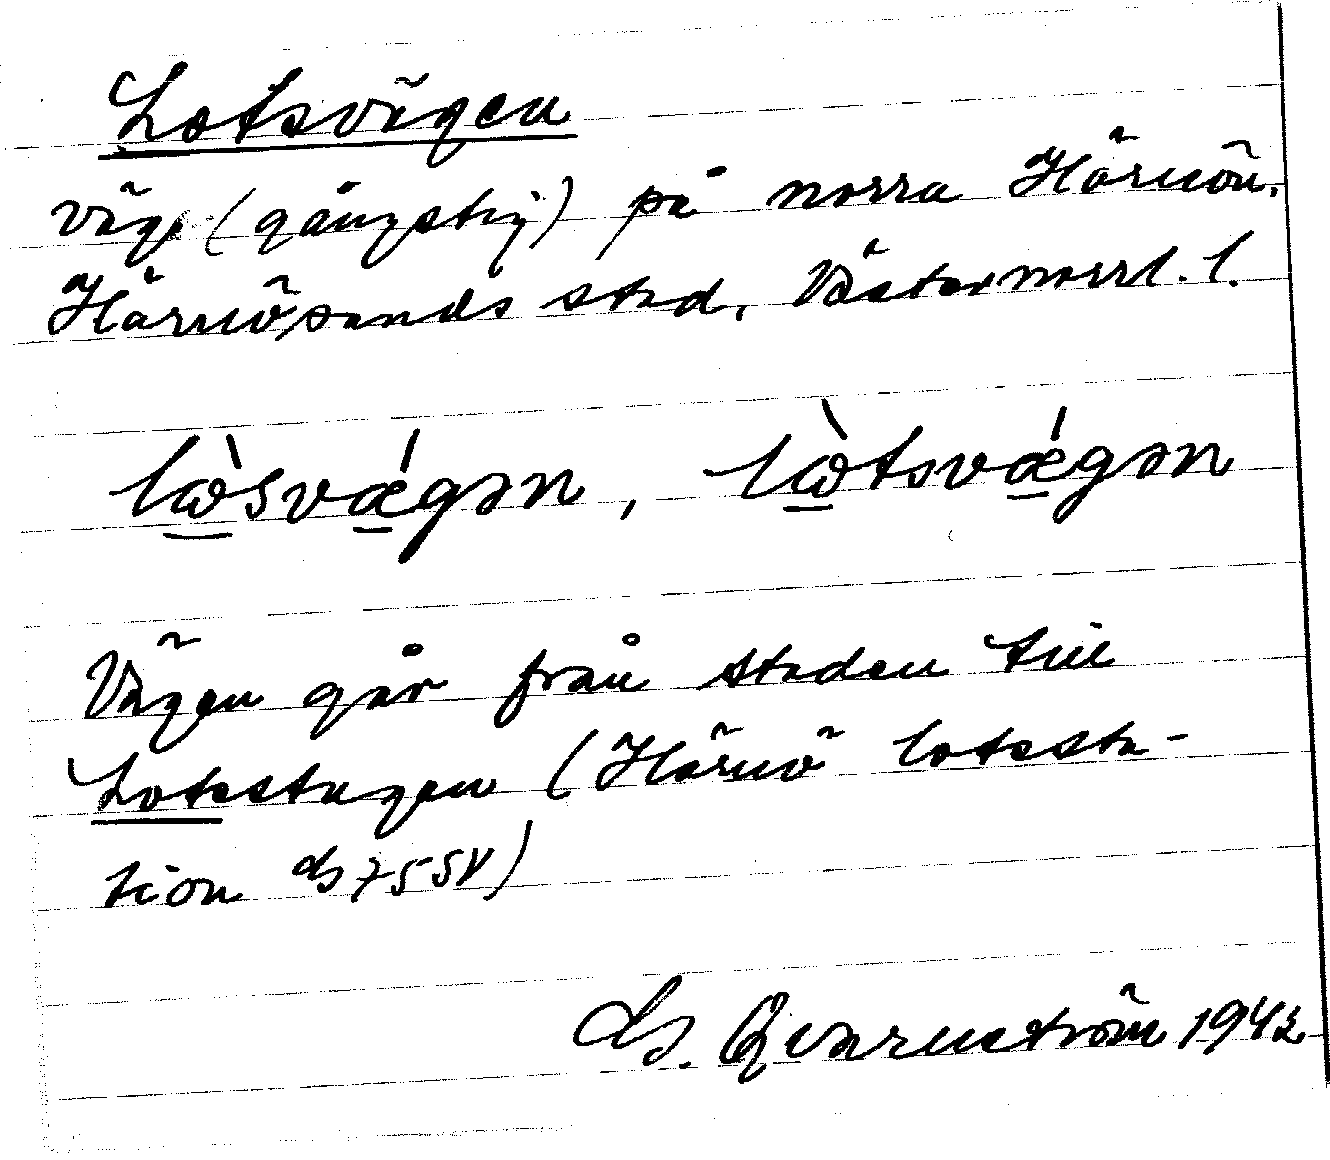 Lotsvägen
Väg (gångstig) på norra Härnön.
Härnösands stad, Västernorrl. l.
lὼsvǽgən, lὼtsvǽgən
Vägen går från staden till
Lotsstugan (Härnö lotssta-
tion 75 SV)
Qvarnström 1942